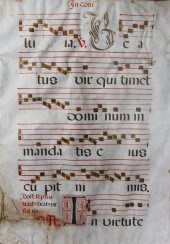 luia. V. B e a
tus vir qui timet
domi num in
manda tis e ius
cu pit ni mis.
In virtute